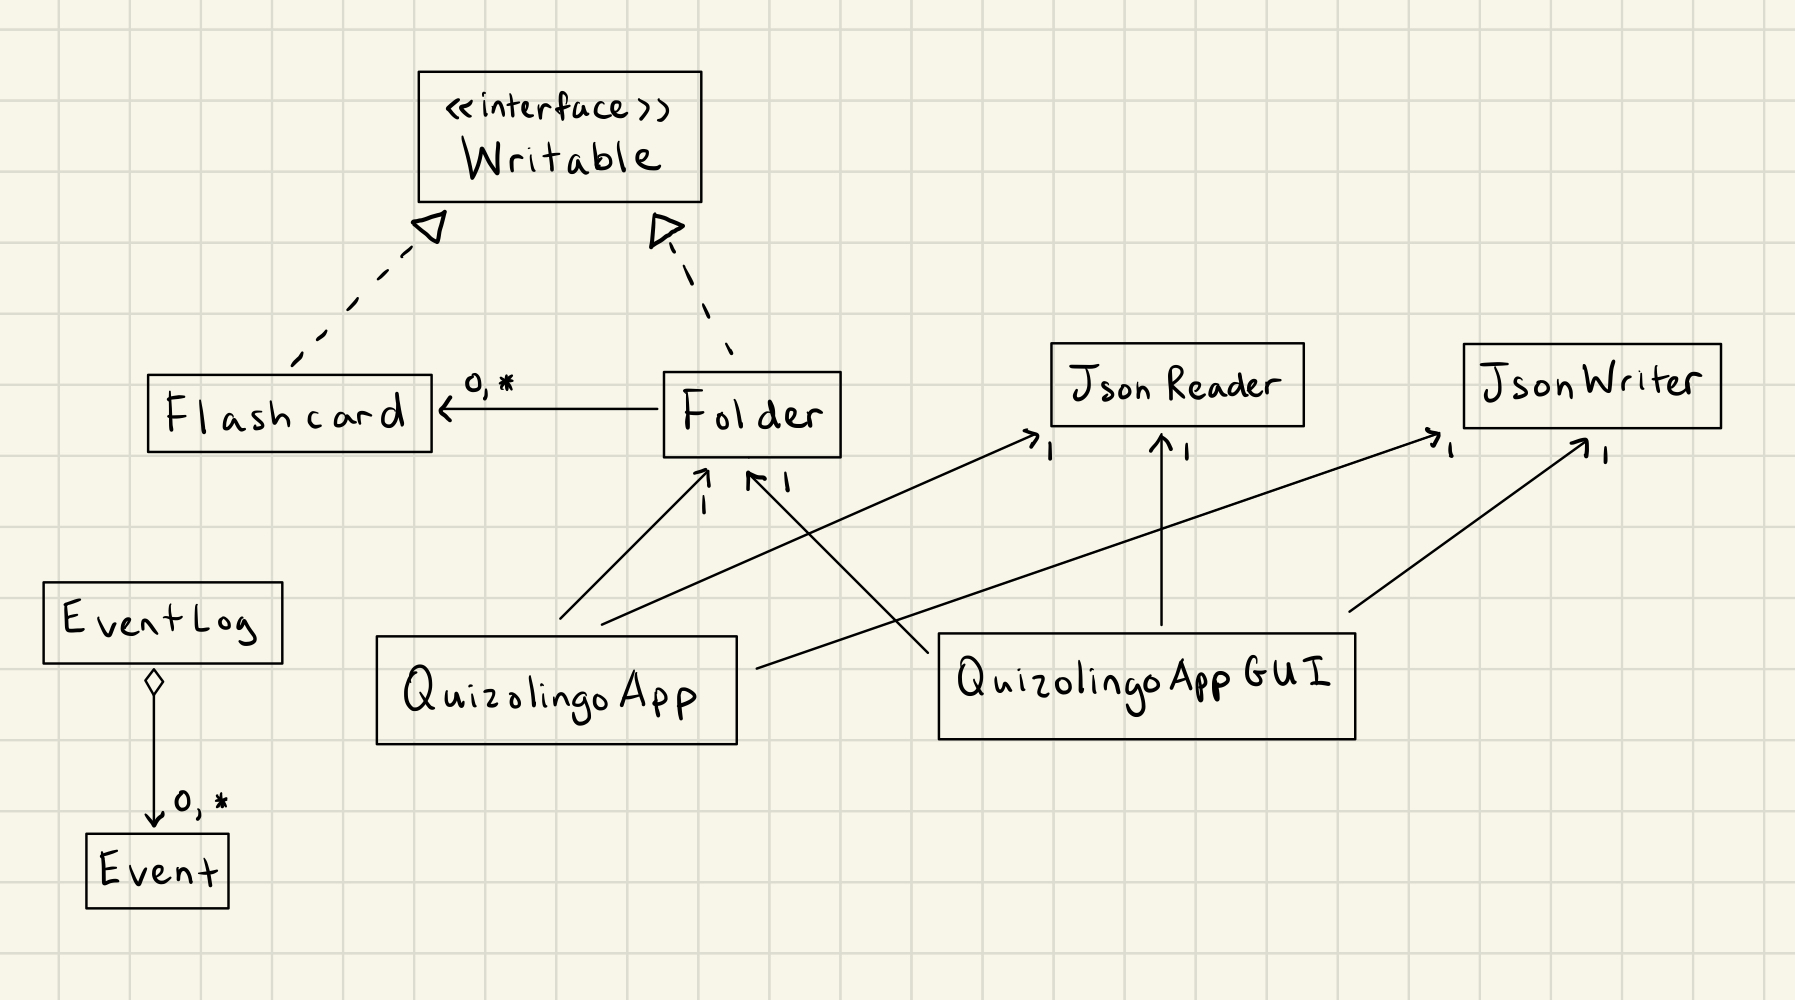 <<interface>>
Writable
Flashcard
0,*
Folder
JsonReader
JsonWriter
1
1
1
1
1
1
EventLog
QuizolingoApp
QuizolingoAppGUI
0,*
Event